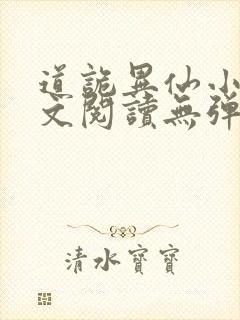 道詭異仙小
文閱讀無彈
清水寶寶